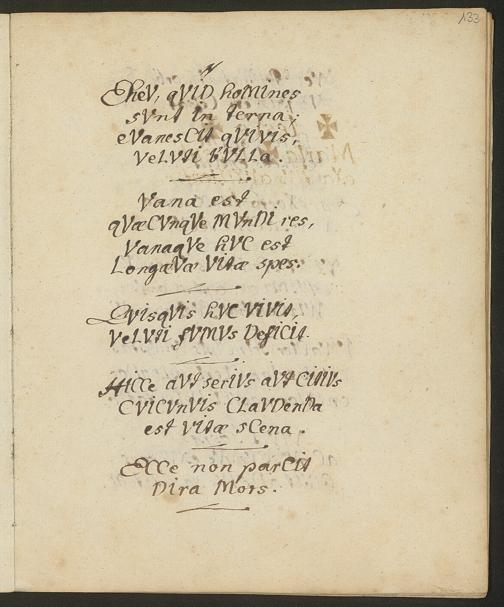 133
EheV, qVID hoMInes
sVnt In terra;
eVanesCIt qVIVIs,
VeLVtI bVLLa.
Vana est
qVæCVnqVe MVnDI res,
VanaqVe hVC est
LongæVæ VItæ spes.
QVIsqVIs hVC VIVIt,
VeLVtI fVMVs DefICIt.
HICCe aVt serIVs aVt CItIVs
CVICVnVIs CLaVDenDa
est VItæ sCena.
ECCe non parCIt
DIra Mors.